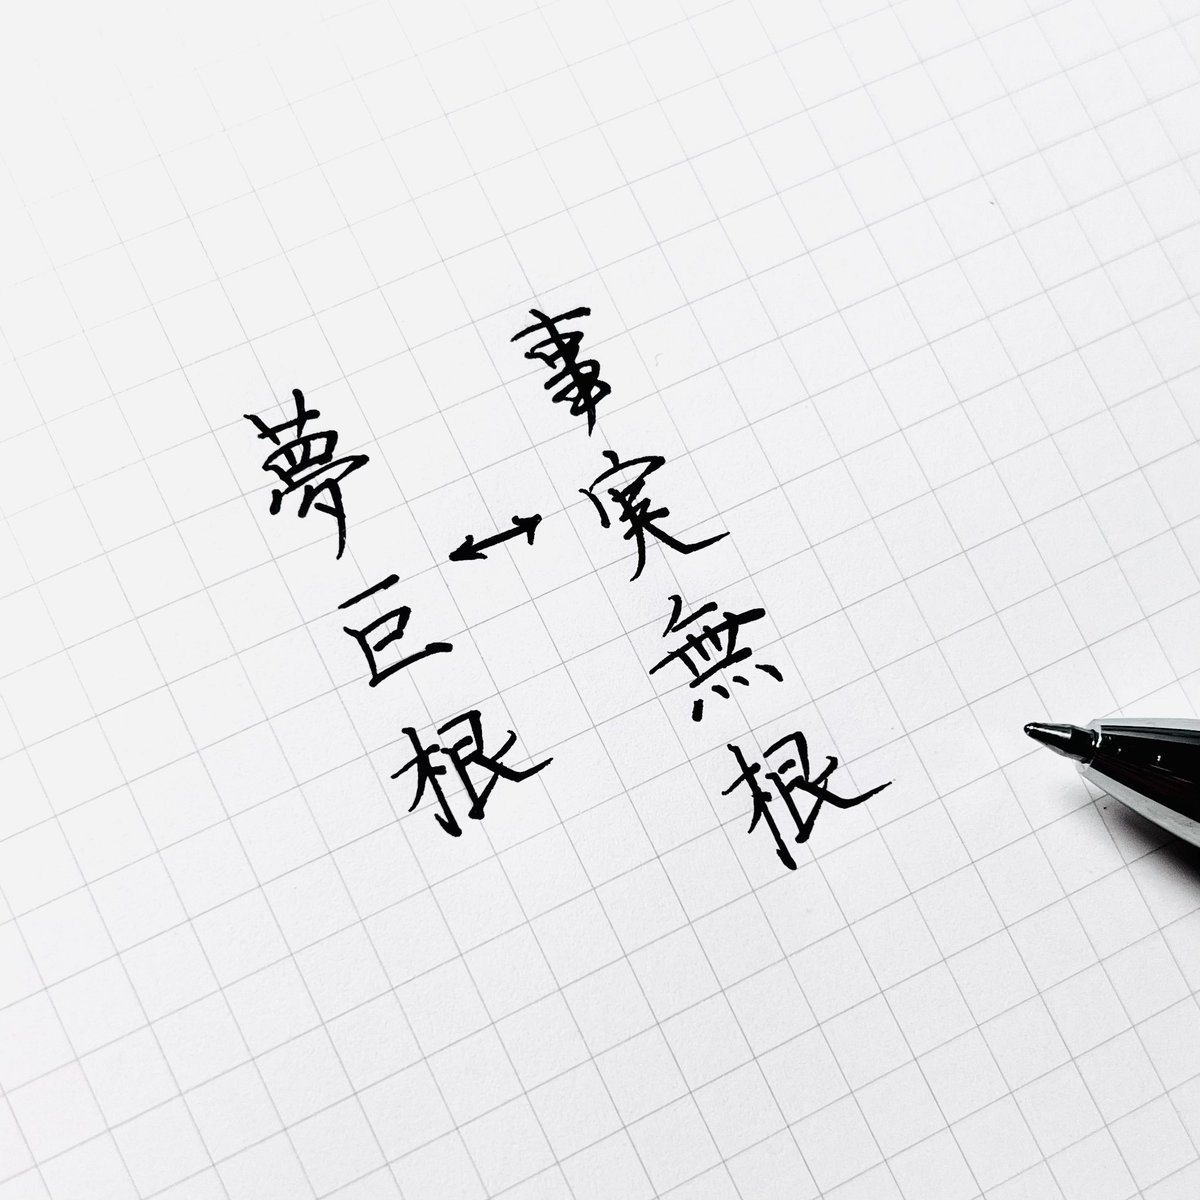 事実無根
↔
夢巨根